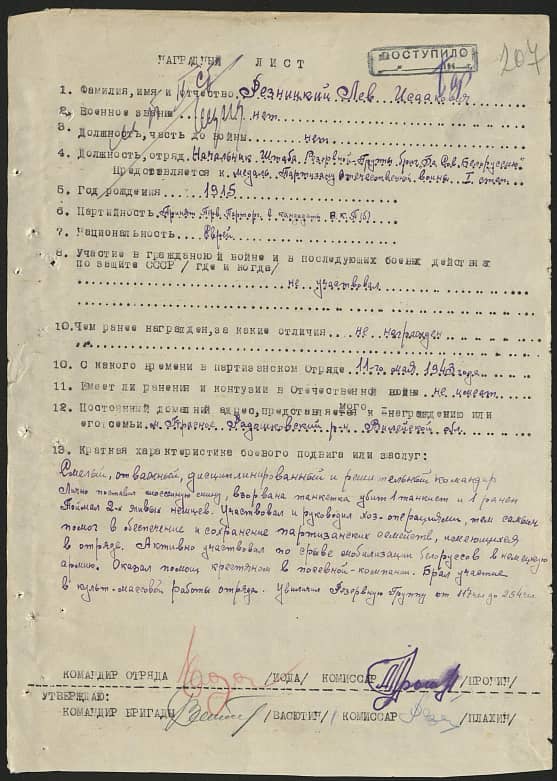 ПОСТУПИЛО
207
НАГРАДНЫЙ ЛИСТ
1. Фамилия, имя и отчество Резницкий Лев Исаакович
2. Военное звание нет
3. Должность, часть до войны нет
4. Должность, отряд. Начальник Штаба Резервной Группы бриг. "За Сов. Белоруссию"
Представляется к медаль "Партизану Отечественной войны" I степ.
5. Год рождения 1915
6. Партийность Принят Перв. Парторг. в кандидаты В.К.П(б)
7. Национальность Еврей
8. Участие в гражданской войне и в последующих боевых действиях
по защите СССР /где и когда/
не участвовал
10. Чем ранее награжден, за какие отличия не награжден
10. С какого времени в партизанском отряде 11-го мая 1943 года
11. Имеет ли ранения и контузии в Отечественной войне не имеет
12. Постоянный домашний адрес, представляемого к награждению или
его семьи м. Красное Радашковский р-н Вилейской обл.
13. Краткая характеристика боевого подвига или заслуг:
Смелый, отважной, дисциплинированной и решительной командир
Лично поставил шоссейную мину, взорвана танкетка убит 1 танкист и 1 ранен
Поймал 2-х живых немцев. Участвовал и руководил хоз-операциями, тем самым
помог в обеспечение и сохранение партизанских семейств, имеющихся
в отряде. Активно участвовал по срыве мобилизации белоруссов в немецкую
армию. Оказал помощ крестяном в посевной-компании. Брал участие
в культ-массовой работы отряда. Увиличил Резервную Группу от 117 чел до 254 чел.
КОМАНДИР ОТРЯДА /ЙОДА/ КОМИССАР /ПРОНИН/
УТВЕРЖДАЮ:
КОМАНДИР БРИГАДЫ /ВАСЮТИН/ КОМИССАР /ПЛАХИН/